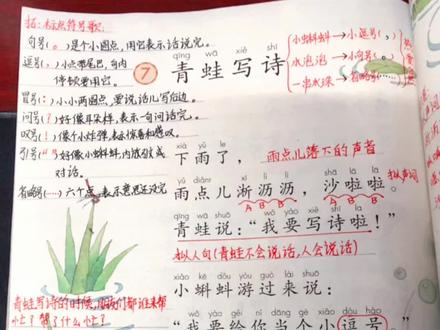 拓：标点符号歌
句号（。）是个小圆点，用它表示话说完。
逗号（，）小点带尾巴，句内
停顿要用它。
冒号（：）小小两圆点，要说话儿写后边。
问号（？）好像耳朵样，表示一句问话完。
叹号（！）像个小炸弹，表示惊喜和感叹。
引号（“ ”）好像小蝌蚪，内放引或
对话。
省略号（……）六个点，表示意思还没完
qīng wā xiě shī
7 青蛙写诗
小蝌蚪→小逗号（，）
水泡泡→小句号（。）
一串水珠→省略号（……）
xià yǔ le
下雨了， 雨点儿落下的声音
yǔ diǎnr xī lì lì shā lā lā
雨点儿淅沥沥，沙啦啦。
拟声词
A B B A B B
qīng wā shuō wǒ yào xiě shī la
青蛙说：“我要写诗啦！”
拟人句（青蛙不会说话，人会说话）
xiǎo kē dǒu yóu guò lái shuō
小蝌蚪游过来说：
wǒ yào gěi nǐ dāng gè xiǎo dòu hào
“我要给你当个小逗号
青蛙写诗的时候，
忙？帮了什么忙？